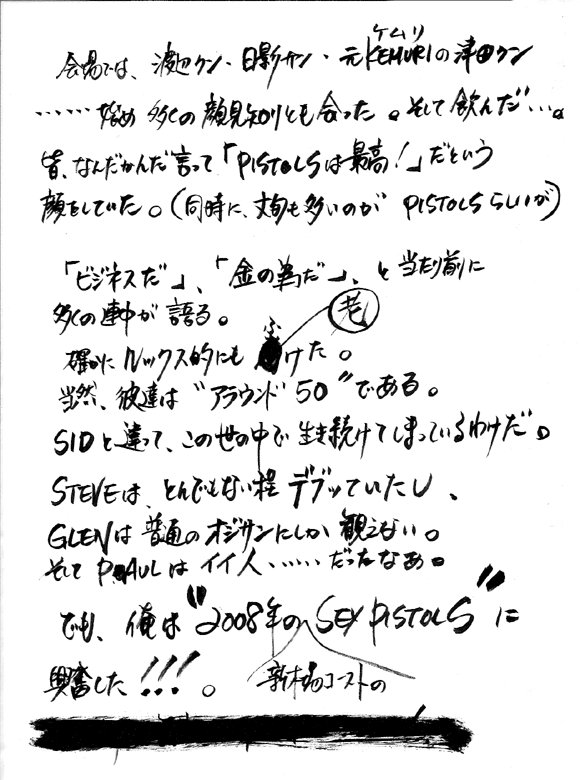 会場では、渡辺クン・日影サン・元KEMURIの津田クン
ケムリ
……始め 多くの顔見知りとも会った。そして飲んだ…。
皆、なんだかんだ言って「PISTOLSは最高！」だという
顔をしていた。（同時に、文句も多いのが PISTOLSらしいが）
「ビジネスだ」、「金の為だ」、と当たり前に
多くの連中が語る。
確かにルックス的にも老けた。
ふ
当然、彼達は"アラウンド50"である。
SIDと違って、この世の中で生き続けてしまっているわけだ。
STEVEは、とんでもない程デブッていたし、
GLENは普通のオジサンにしか観えない。
そしてPAULはイイ人……だったなあ。
でも、俺は"2008年のSEX PISTOLS"に
興奮した!!!。
新木場コーストの